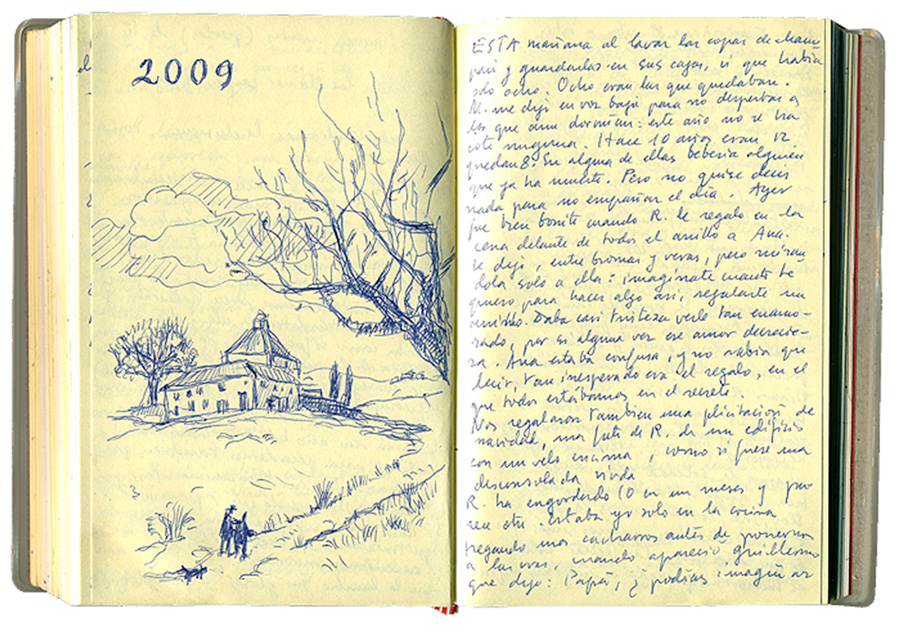 2009
ESTA mañana al lavar las copas de cham-
pán y guardarlas en sus cajas, vi que había
solo ocho. Ocho eran las que quedaban.
M. me dijo en voz baja para no despertar a
los que aun dormían: este año no se ha
roto ninguna. Hace 10 años eran 12
quedan 8. En alguna de ellas bebería alguien
que ya ha muerto. Pero no quise decir
nada para no empañar el día. Ayer
fue bien bonito cuando R. le regaló en la
cena delante de todos el anillo a Ana.
Le dijo, entre bromas y veras, pero mirán
dola solo a ella: imagínate cuanto te
quiero para hacer algo así, regalarte un
anillo. Daba casi tristeza verlo tan enamo-
rado, por si alguna vez ese amor decrecie-
ra. Ana estaba confusa, y no sabía que
decir, tan inesperado era el regalo, en el
que todos estábamos en el secreto.
Nos regalaron tambien una felicitación de
navidad, una foto de R. de un edificio
con un velo encima, como si fuese una
desconsolada viuda.
R. ha engordado 10 en un meses y
Estaba yo solo en la cocina
fregando unos cacharros antes de ponernos
a las uvas, cuando apareció Guillermo
que dijo: Papá, ¿podías imaginar